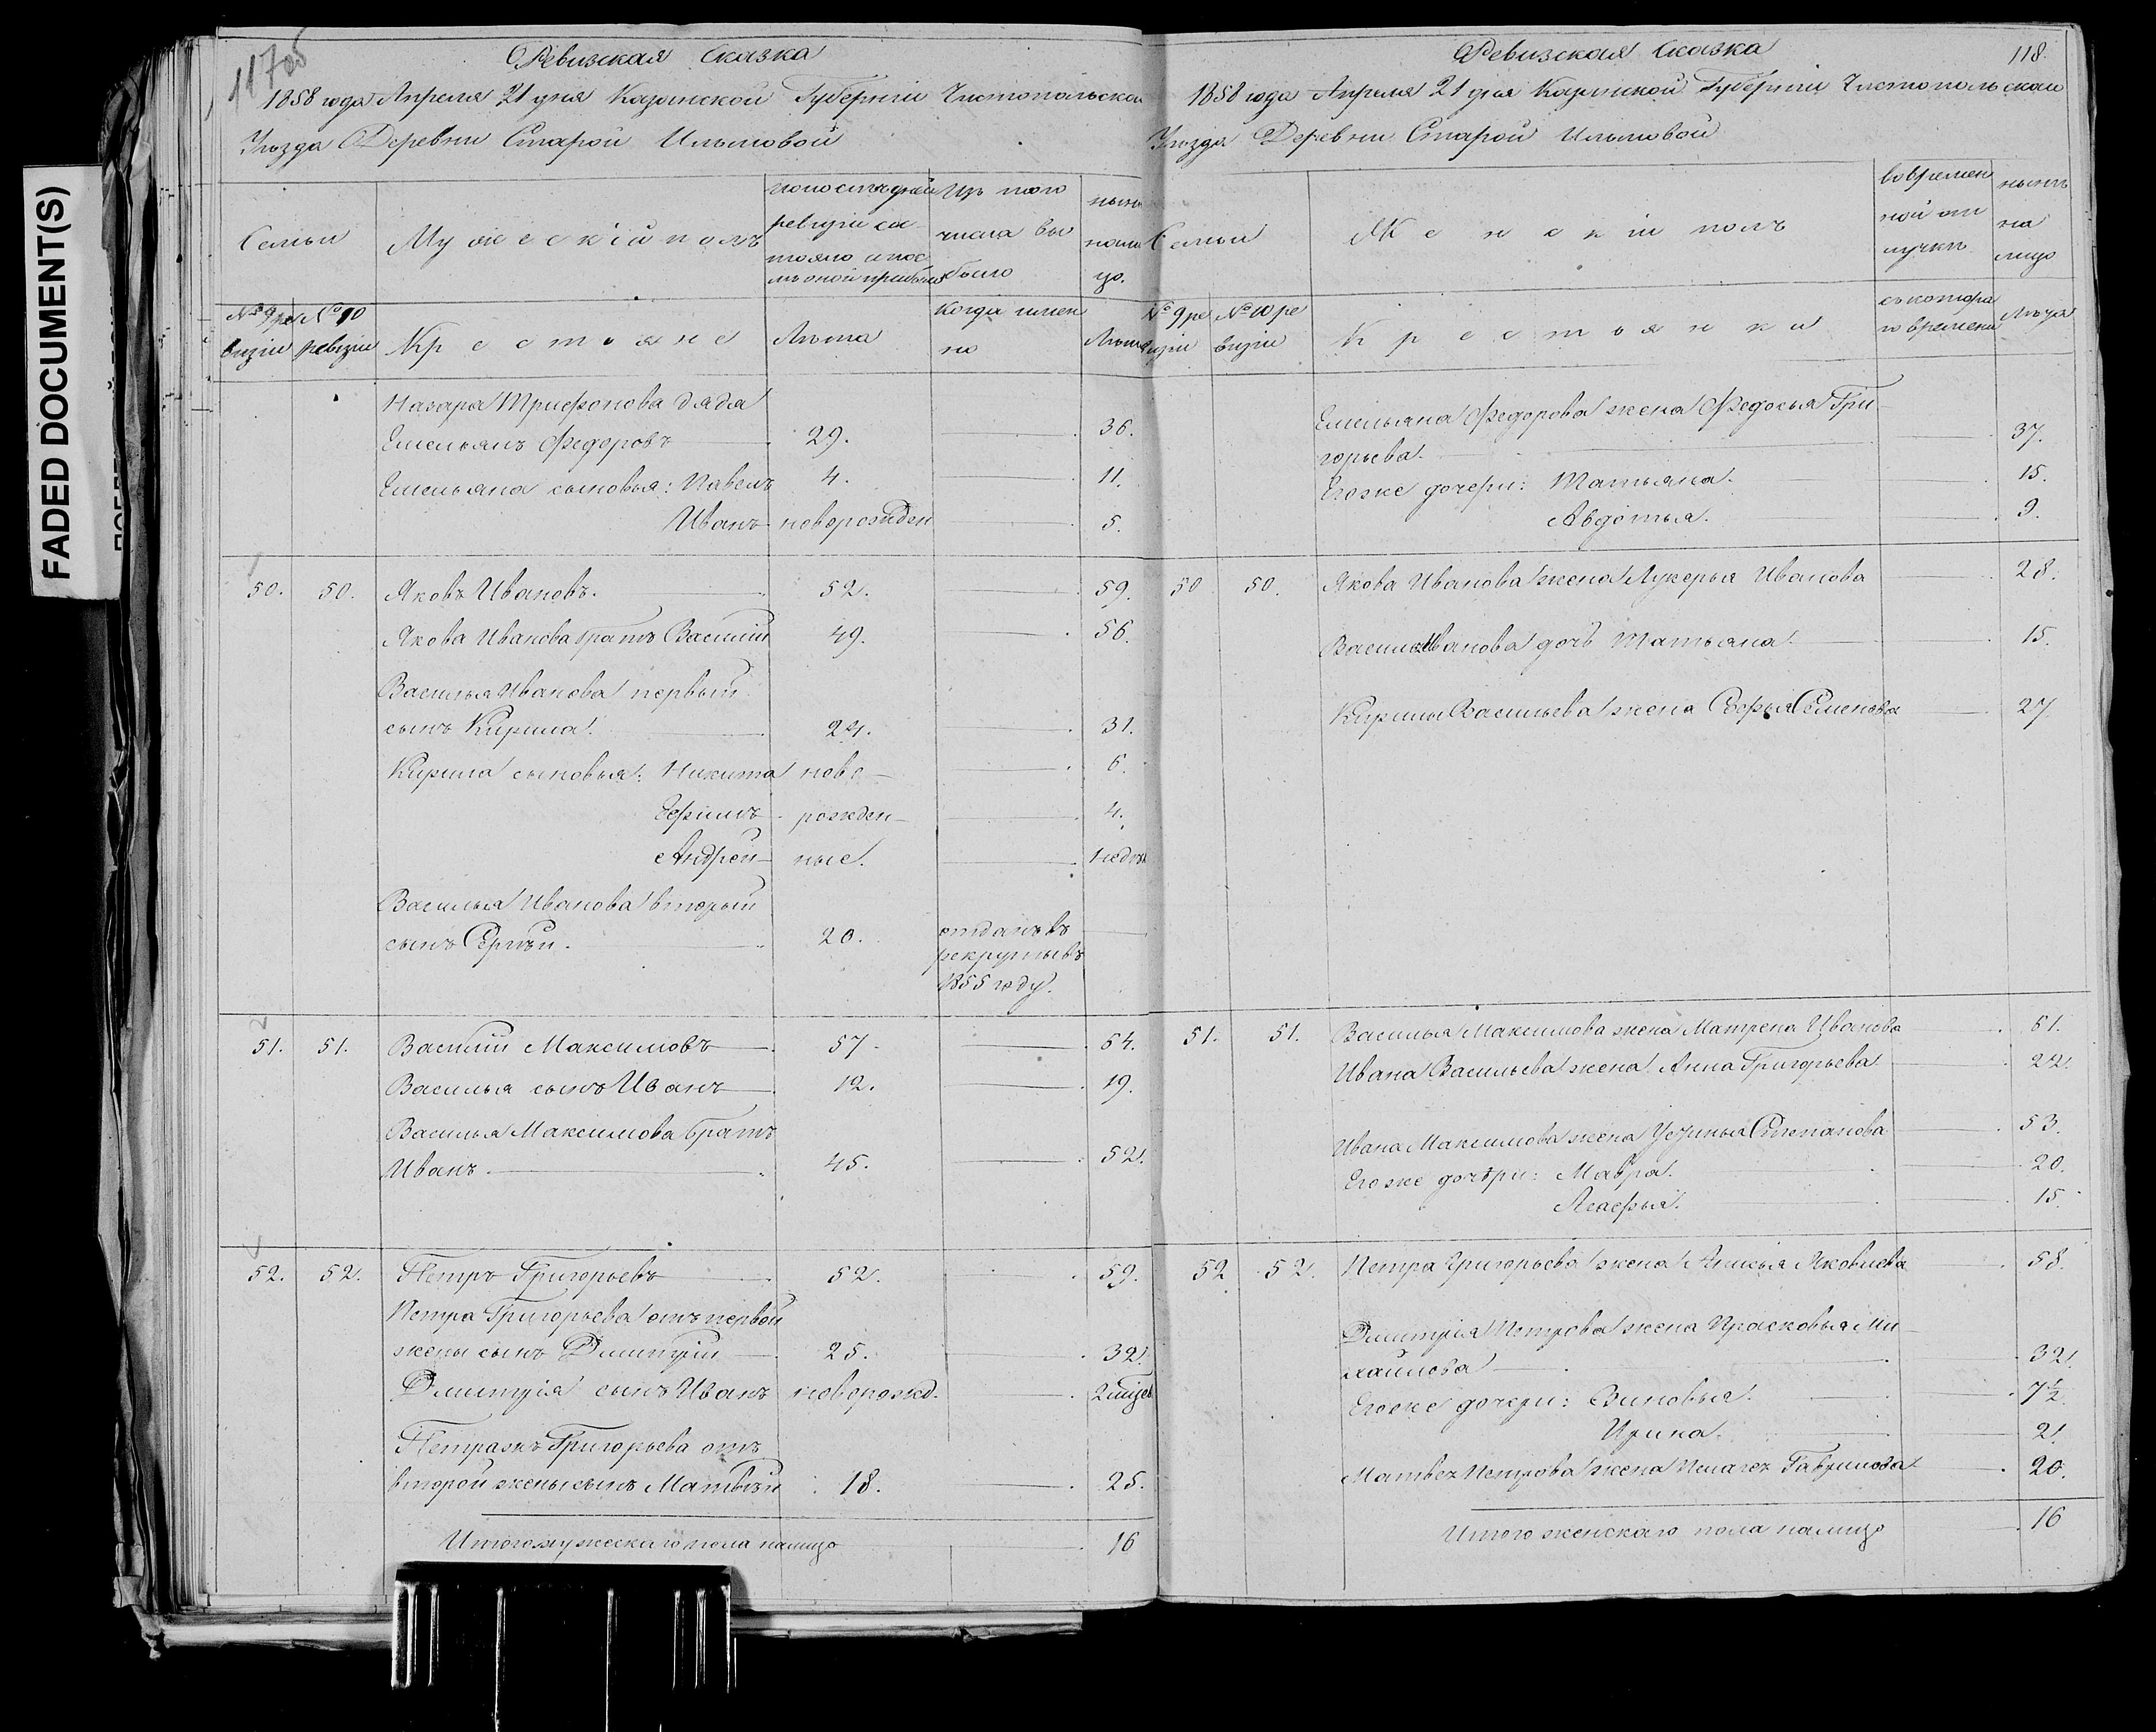 FADED DOCUMENT(S)
Ревизская Сказка
1858 года Апреля 21 дня Казанской Губерніи Чистопольскаго
Уѣзда Деревни Старой Ильмовой
Семьи
Мужескій полъ
по послѣдней ревизіи состояло и послѣ оной прибыло
Изъ того числа выбыло
нынѣ на лицо.
№ 9 ревизіи
№ 10 ревизіи
Крестьяне
Лѣта
Когда именно
Лѣта
Назара Трифонова дядя
Емельянъ Федоровъ 29. 36.
Емельяна сыновья: Павелъ 4. 11.
Иванъ новорожден 5.
50. 50. Яковъ Ивановъ. 52. 59.
Якова Иванова братъ Василій 49. 56.
Василья Иванова первый
сынъ Кирила. 24. 31.
Кирила сыновья: Никита ново- 6.
Ефимъ рожден- 4.
Андрей ные. 1 недѣл
Василья Иванова вторый
сынъ Сергѣй. 20. отданъ въ
рекруты въ
1855 году.
51. 51. Василій Максимовъ 57. 64.
Василья сынъ Иванъ 12. 19.
Василья Максимова братъ
Иванъ. 45. 52.
52. 52. Петръ Григорьевъ 52. 59.
Петра Григорьева отъ первой
жены сынъ Дмитрій 25. 32.
Дмитрія сынъ Иванъ новорожд. 2 мѣсец
Петражъ Григорьева отъ
второй жены сынъ Матвѣй 18. 25.
Итого мужескаго пола налицо 16
118.
Ревизская Сказка
1858 года Апреля 21 дня Казанской Губерніи Чистопольскаго
Уѣзда Деревни Старой Ильмовой
Семьи
Женскій полъ
во временной отлучкѣ
нынѣ на лицо
№ 9 ревизіи
№ 10 ревизіи
Крестьянки
съ котораго времени
Лѣта
Емельяна Федорова жена Федосья Гри
горьева. 37.
Егоже дочери: Татьяна. 15.
Авдотья. 9.
50 50. Якова Иванова жена Лукерья Иванова 28.
Василья Иванова дочь Татьяна. 15.
Кирилы Васильева жена Софья Семенова 27
51. 51. Василья Максимова жена Матрена Иванова 61.
Ивана Васильева жена Анна Григорьева 22.
Ивана Максимова жена Устинья Степанова 53.
Егоже дочери: Мавра. 20.
Агафья. 15
52 52. Петра Григорьева жена Анисья Яковлева 58.
Дмитрія Петрова жена Прасковья Ми
хайлова 32.
Егоже дочери: Зиновья. 7½.
Ирина. 2.
Матвея Петрова жена Пелагея Гаврилова 20.
Итого женскаго пола налицо 16